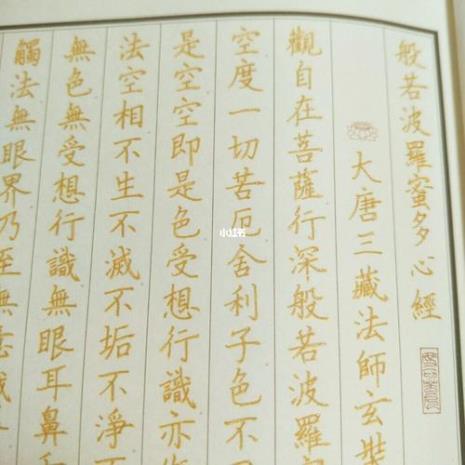 般若波羅蜜多心經
大唐三藏法師玄奘
觀自在菩薩行深般若波羅
空度一切苦厄舍利子色不
是空空即是色受想行識亦
法空相不生不滅不垢不淨不
無色無受想行識無眼耳鼻
觸法無眼界乃至無意識
小红书